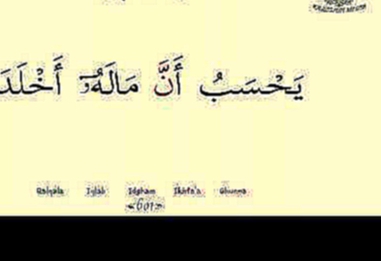 يَحْسَبُ أَنَّ مَالَهُۥٓ أَخْلَدَ
Qalqala Iqlab Idgham Ikhfa'a Ghunna
<601>